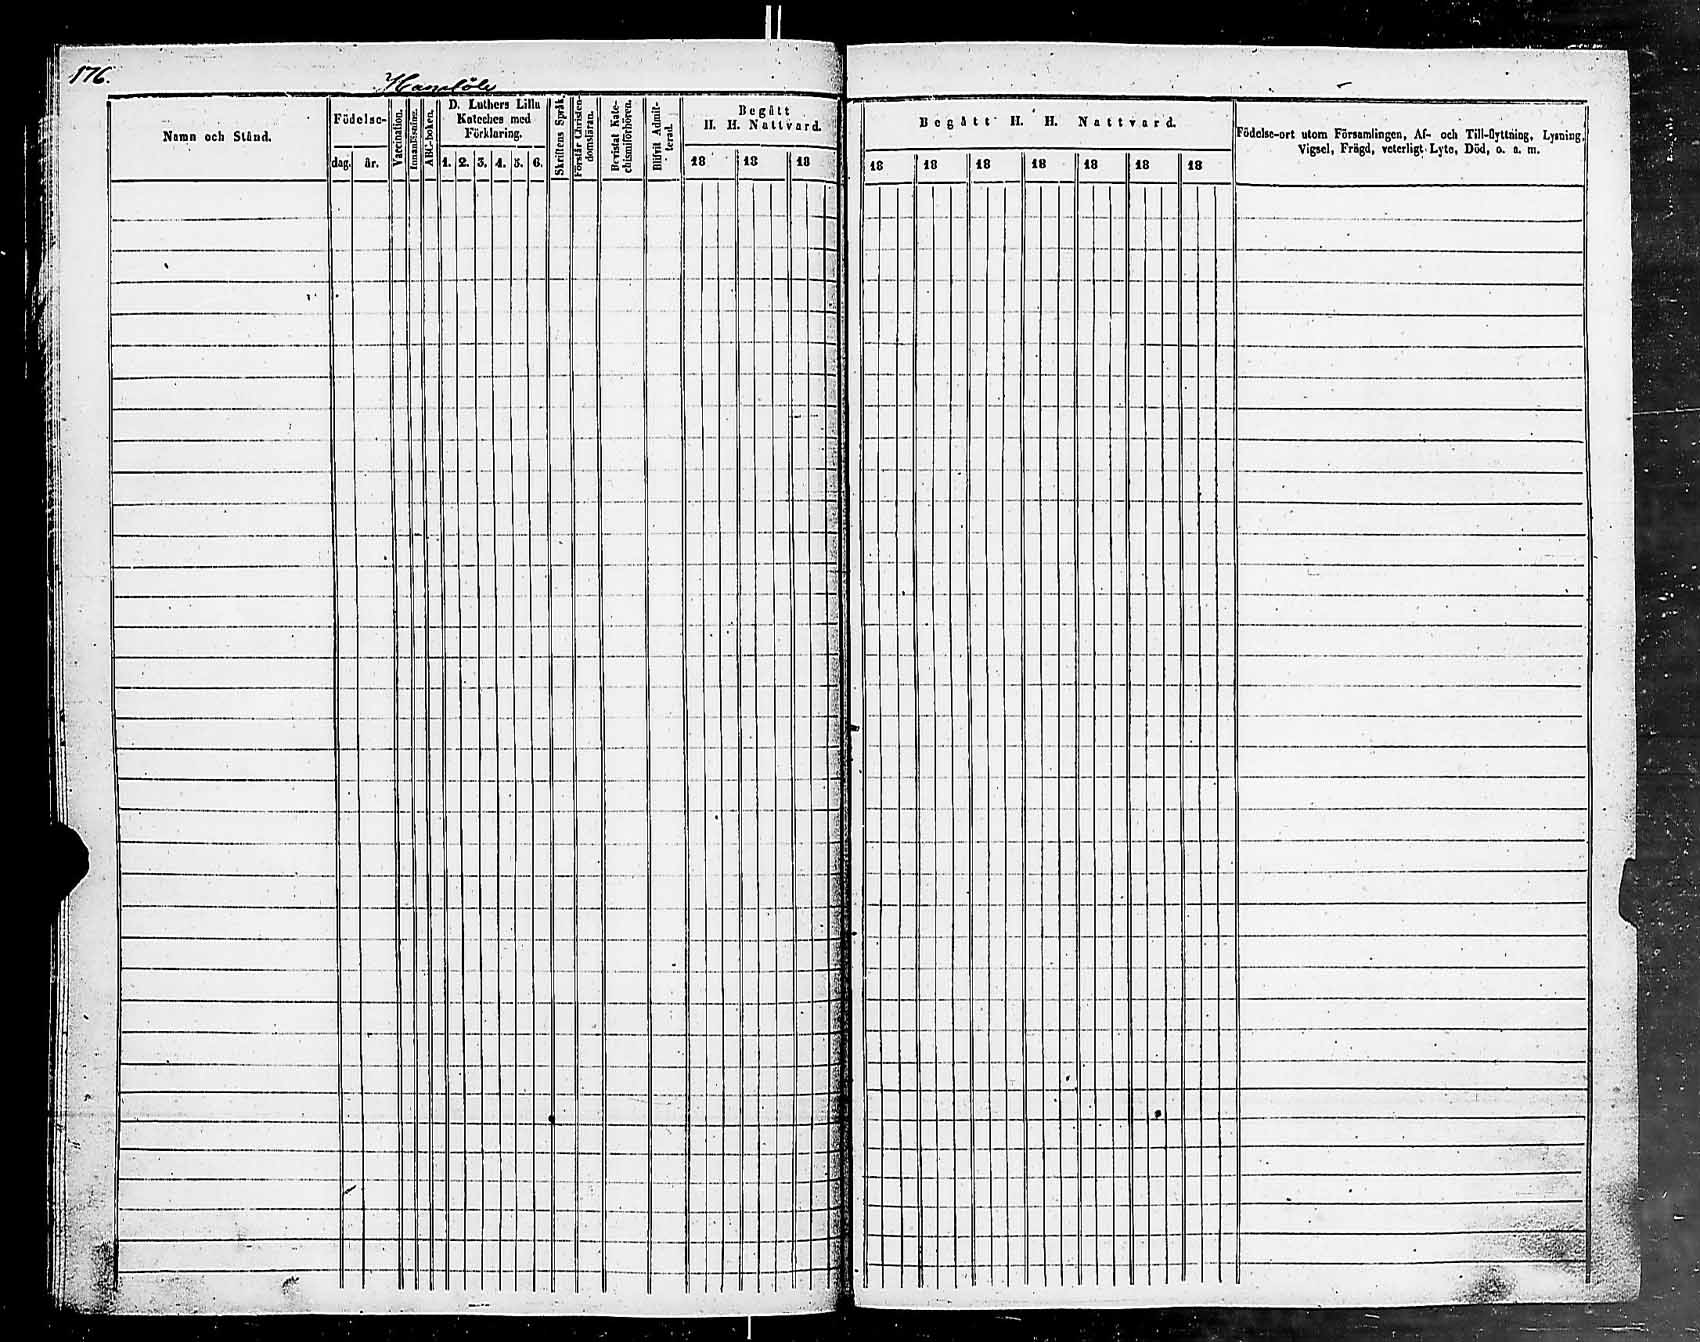 176.
Namn och Stånd.
Födelse-
dag.
år.
Vaccination.
Innanläsning.
ABC-boken.
D. Luthers Lilla
Kateches med
Förklaring.
1. 2. 3. 4. 5. 6.
Skriftens Språk.
Förstår Christen-
domsläran.
Bevistat Kate-
chismiförhören.
Blifvit Admit-
terad.
Begått
H. H. Nattvard.
18 18 18
Begått H. H. Nattvard.
18 18 18 18 18 18 18
Födelse-ort utom Församlingen, Af- och Till-flyttning, Lysning,
Vigsel, Frägd, veterligt Lyte, Död, o. s. m.